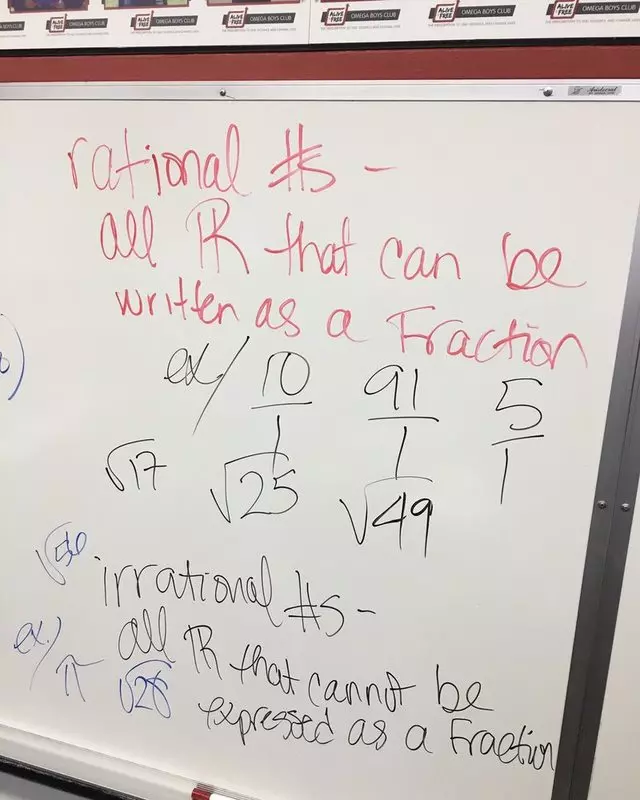 ALIVE FREE OMEGA BOYS CLUB
ALIVE FREE OMEGA BOYS CLUB
ALIVE FREE OMEGA BOYS CLUB
ALIVE FREE OMEGA BOYS CLUB
ALIVE FREE OMEGA BOYS CLUB
ALIVE FREE OMEGA BOYS CLUB
rational #s -
all ℝ that can be
written as a Fraction
ex/ 10/1 91/1 5/1
√17 √25 √49
√56
irrational #s -
all ℝ that cannot be
expressed as a Fraction
ex./ π √28